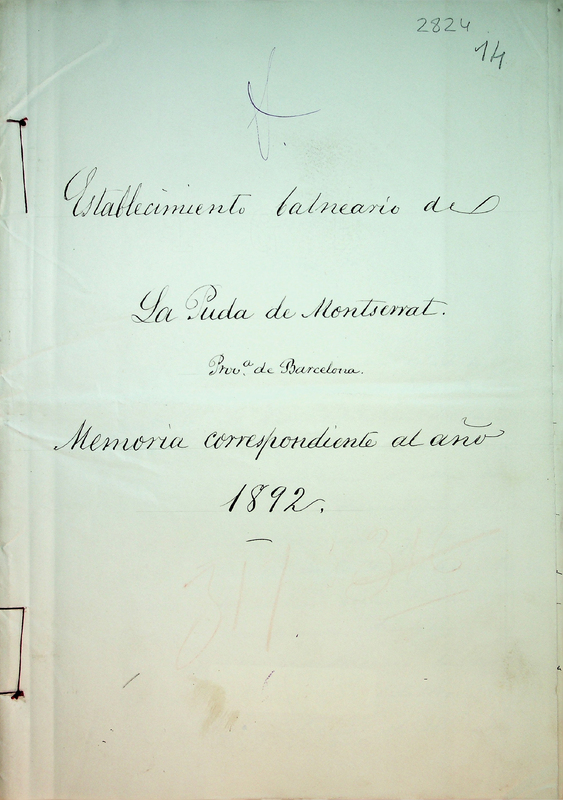 2824
14
Establecimiento balneario de
La Puda de Montserrat.
Prov.ª de Barcelona.
Memoria correspondiente al año
1892.